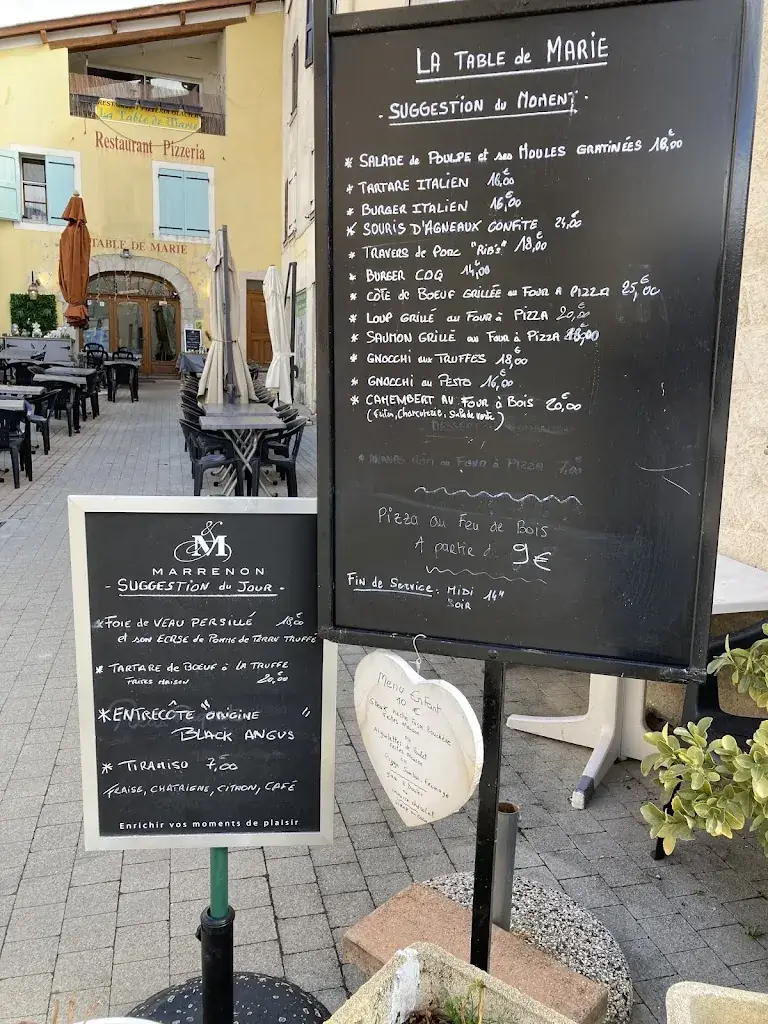 RESTAURANT PIZZERIA GLACIER
La Table de Marie
Restaurant Pizzeria
TABLE DE MARIE
LA TABLE de MARIE
- SUGGESTION du MOMENT -
* SALADE de POULPE et ses MOULES GRATINÉES 18,00€
* TARTARE ITALIEN 16,00€
* BURGER ITALIEN 16,00€
* SOURIS D'AGNEAUX CONFITE 24,00€
* TRAVERS de PORC "RIB'S" 18,00€
* BURGER COQ 14,00€
* CÔTE de BOEUF GRILLÉE au FOUR A PIZZA 25,00€
* LOUP GRILLÉ au FOUR à PIZZA 20,00€
* SAUMON GRILLÉ au FOUR à PIZZA
* GNOCCHI aux TRUFFES 18,00€
* GNOCCHI au PESTO 16,00€
* CAMEMBERT AU FOUR à BOIS 20,00€
(Frites, Charcuterie, Salade verte)
DESSERT
* ANANAS ROTI au FOUR à PIZZA 7,00
Pizza au Feu de Bois
A partir de 9€
FIN de SERVICE : MIDI 14H
SOIR
&
M
MARRENON
- SUGGESTION du JOUR -
* FOIE de VEAU PERSILLÉ 18,00€
et son ECRSE de POMME de TERRE TRUFFÉ
* TARTARE de BOEUF à LA TRUFFE
FRITES MAISON 20,00€
* ENTRECÔTE "ORIGINE
BLACK ANGUS "
* TIRAMISU 7,00€
FRAISE, CHATAIGNE, CITRON, CAFÉ
Enrichir vos moments de plaisir
Menu Enfant
10 €
Steak haché